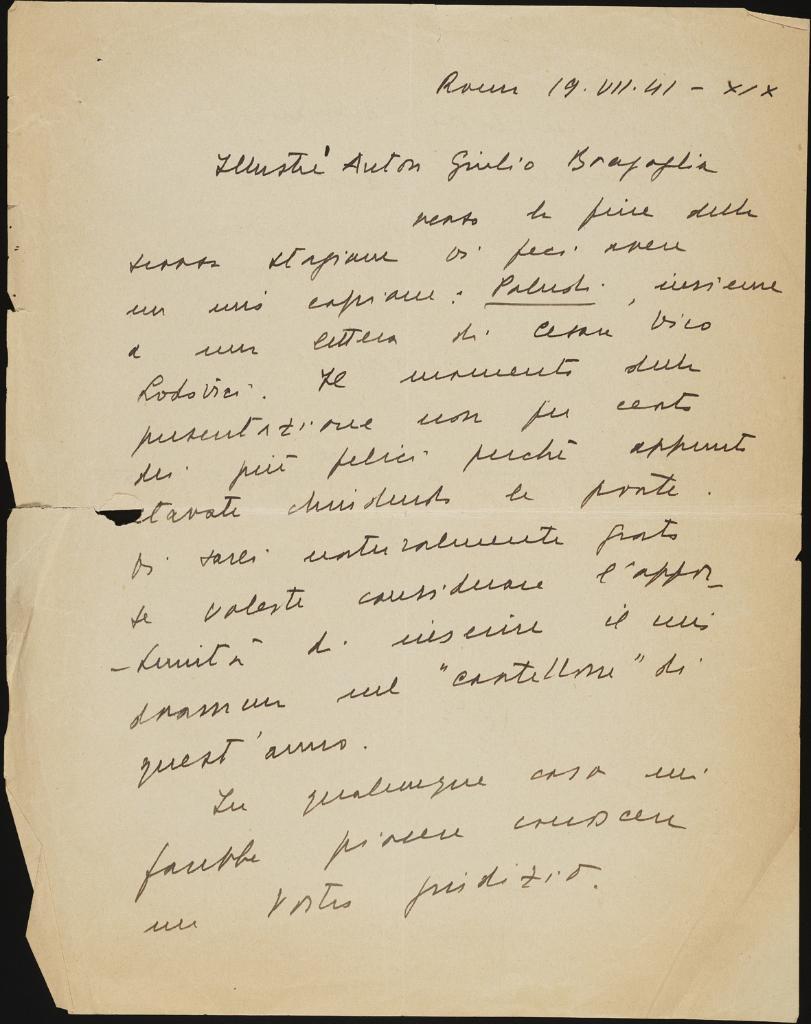 Roma 19.VII.41 - XIX
Illustre Anton Giulio Bragaglia
verso la fine della
scorsa stagione vi feci avere
un mio copione: Paludi, insieme
a una lettera di Cesare Vico
Lodovici. Il momento della
presentazione non fu certo
dei più felici perchè appunto
stavate chiudendo le porte.
Vi sarei naturalmente grato
se voleste considerare l'oppor-
-tunità di inserire il mio
dramma nel "cartellone" di
quest'anno.
In qualunque caso mi
farebbe piacere conoscere
un Vostro giudizio.